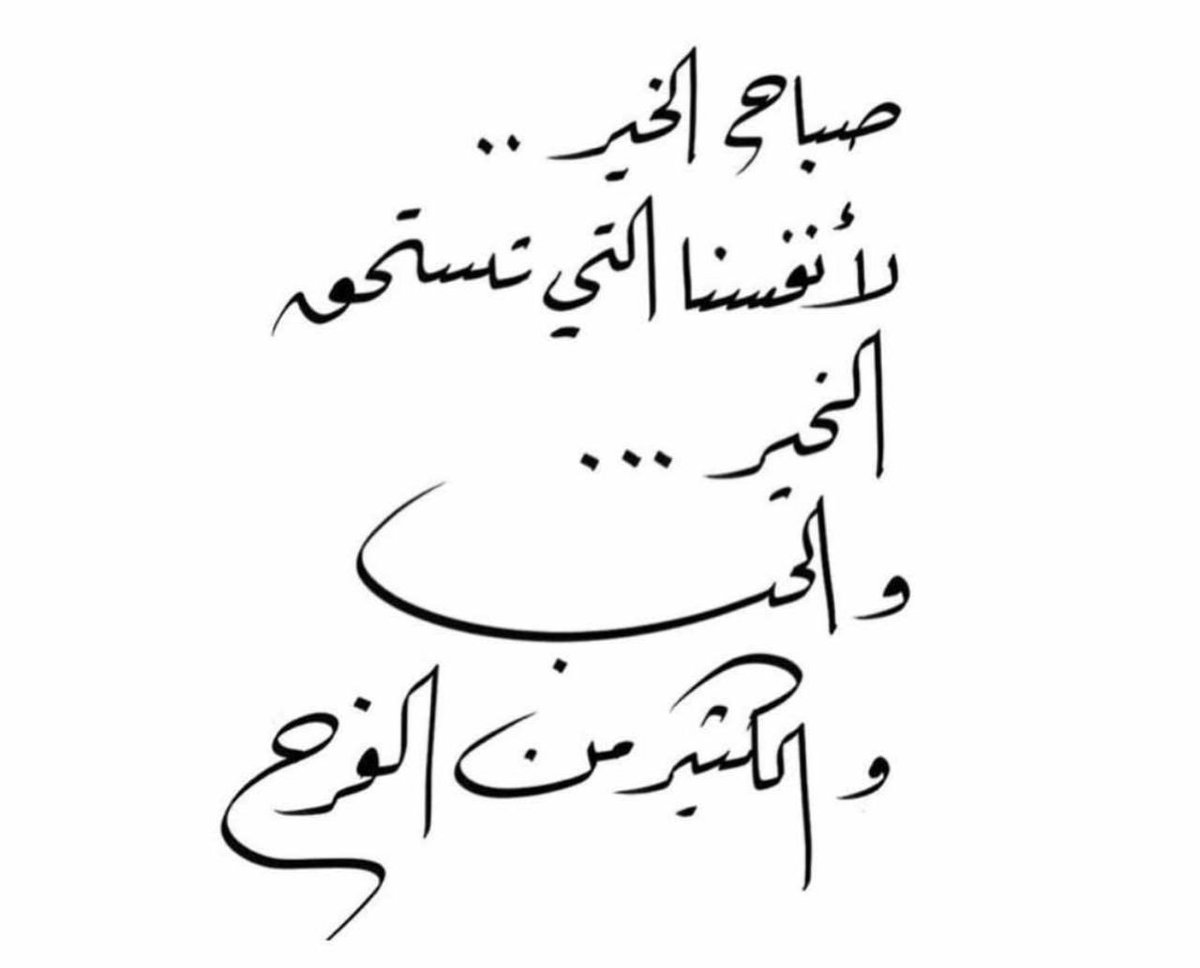 صباح الخير ..
لأنفسنا التي تستحق
الخير ...
و الحب
و الكثير من الفرح